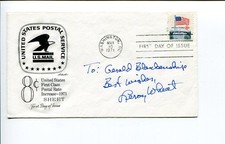 UNITED STATES POSTAL SERVICE
U.S. MAIL
8¢
United States
First Class
Postal Rate
Increase-1971
SHEET
First Day of Issue
WASHINGTON, DC
MAY
1971
FIRST DAY OF ISSUE
To: Gerald Blankenship
Best Wishes,